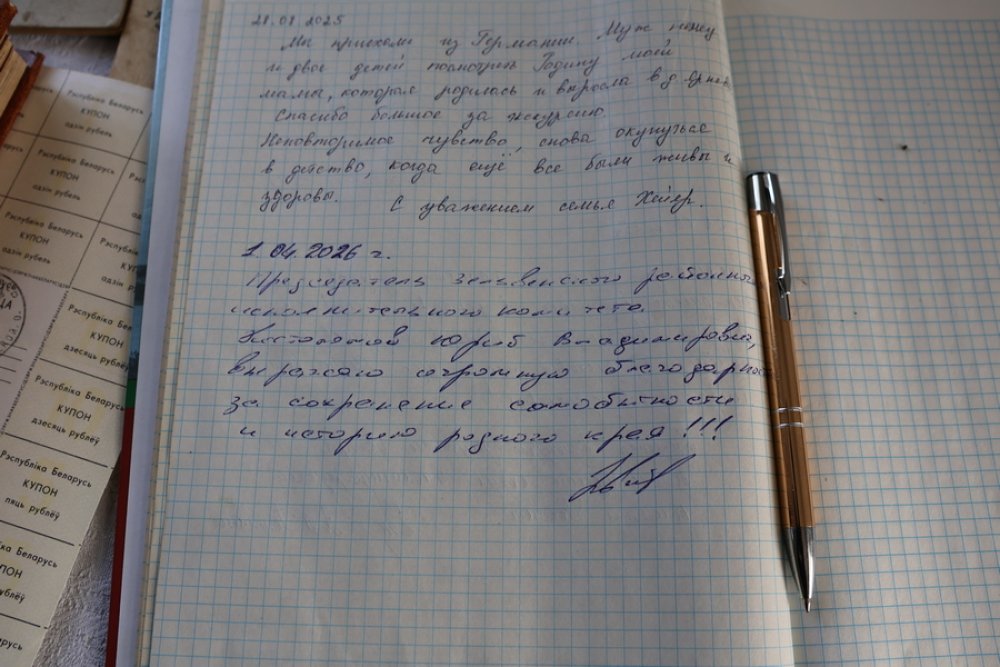 28.08.2025
Мы приехали из Германии. Муж немец
и двое детей посмотреть Родину моей
мамы, которая родилась и выросла в д.
Спасибо большое за экскурсию.
Неповторимое чувство, снова окунуться
в детство, когда ещё все были живы и
здоровы. С уважением семья Хейер.
1.04.2026 г.
Председатель Зельвенского районного
исполнительного комитета.
Юрий Владимирович,
выражаю огромную благодарность
за сохранение самобытности
и историю родного края!!!
Рэспубліка Беларусь
КУПОН
адзін рубель
Рэспубліка Беларусь
КУПОН
адзін рубель
Рэспубліка Беларусь
КУПОН
адзін рубель
Рэспубліка Беларусь
КУПОН
дзесяць рублёў
Рэспубліка Беларусь
КУПОН
дзесяць рублёў
Рэспубліка Беларусь
КУПОН
пяць рублёў
Беларусь
ПОН
рублёў